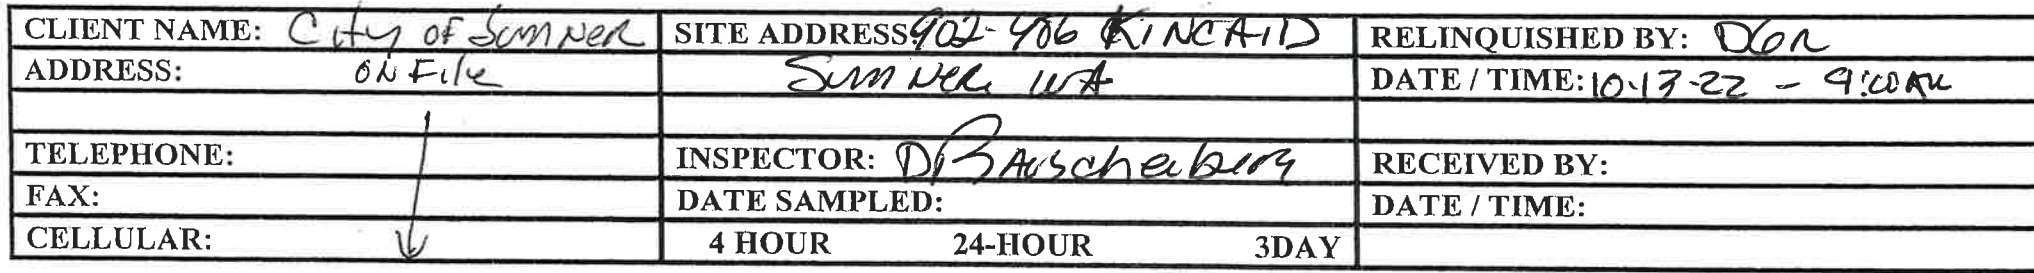 CLIENT NAME: City of Sumner SITE ADDRESS: 902-906 KINCAID RELINQUISHED BY: DGR
ADDRESS: ON File Sumner WA DATE / TIME: 10-13-22 - 9:00 AM
TELEPHONE: INSPECTOR: D RAuschenberg RECEIVED BY:
FAX: DATE SAMPLED: DATE / TIME:
CELLULAR: 4 HOUR 24-HOUR 3DAY